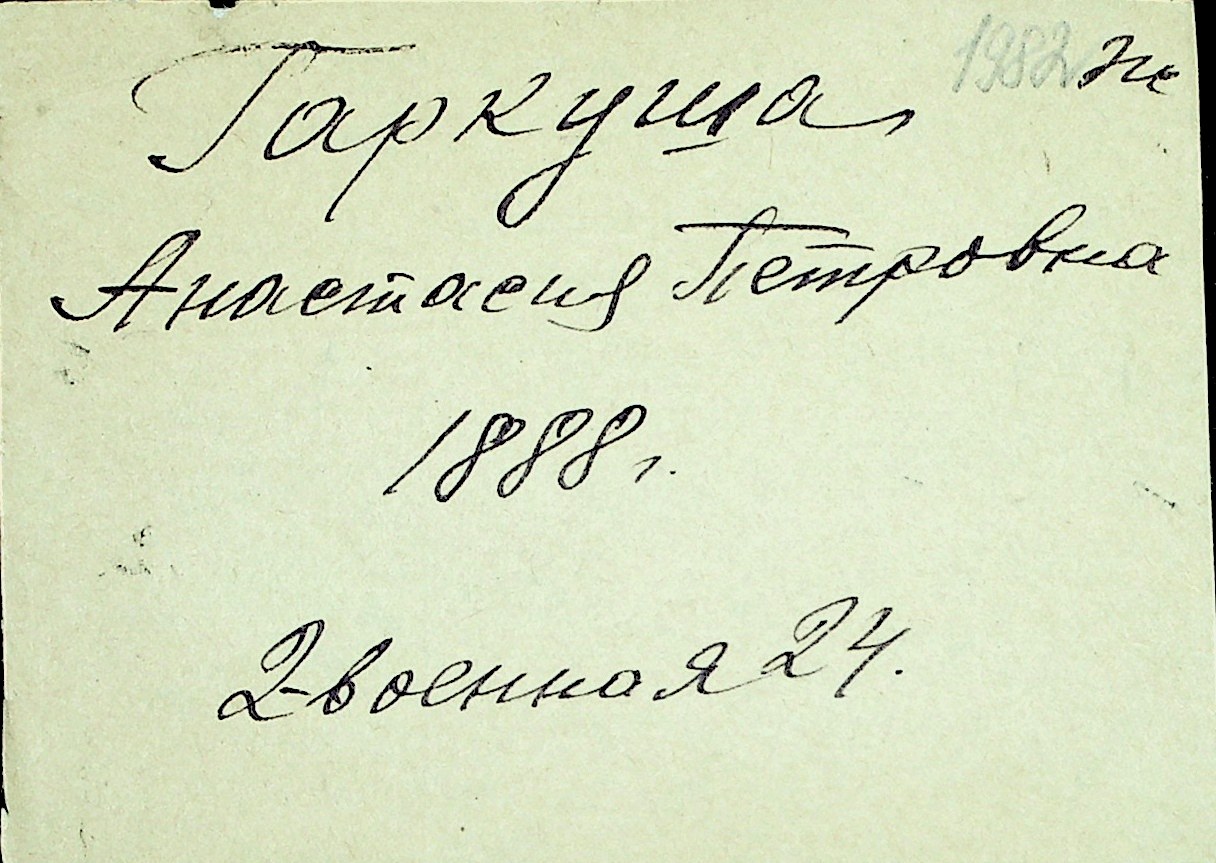 1982 ж
Гаркуша
Анастасия Петровна
1888 г.
2-военная 24.